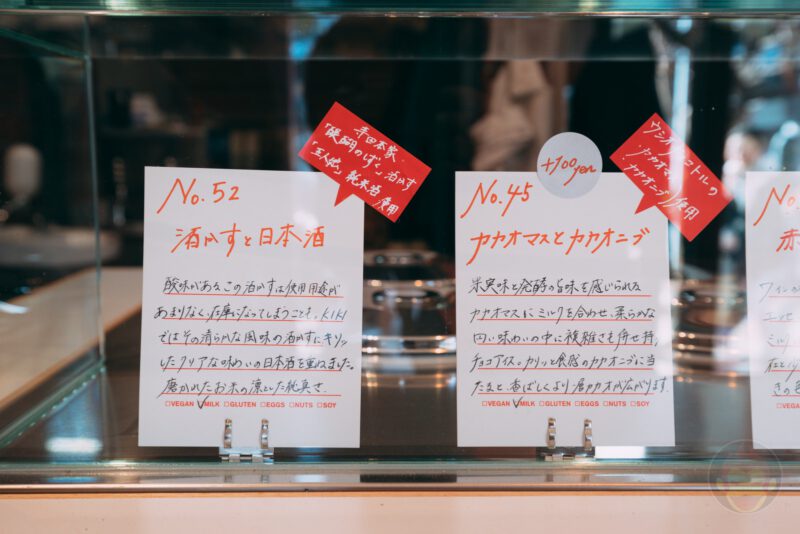 No.52
酒かすと日本酒
寺田本家、
「醍醐のしずく」酒かす
「五人娘」純米酒
使用
酸味があるこの酒かすは使用用途が
あまりなく、在庫になってしまうことも。KIKI
ではその清らかな風味の酒かすにキリッ
としたクリアな味わいの日本酒を重ねました。
磨かれたお米の凛とした純真さ。
□VEGAN ☑MILK □GLUTEN □EGGS □NUTS □SOY
+100yen
No.45
カカオマスとカカオニブ
カカオマス
カカオニブ 使用
果実味と発酵の旨味を感じられる
カカオマスにミルクを合わせ、柔らかな
円い味わいの中に複雑さを併せ持つ
チョコアイス。カリッと食感のカカオニブに当
たると、香ばしくより一層カカオが広がります。
□VEGAN ☑MILK □GLUTEN □EGGS □NUTS □SOY
No.
赤
ワイン
ミルク